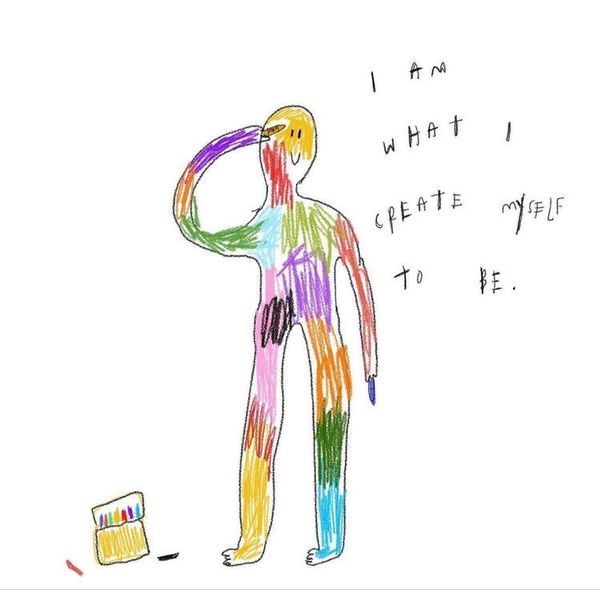 I AM
WHAT I
CREATE MYSELF
TO BE.